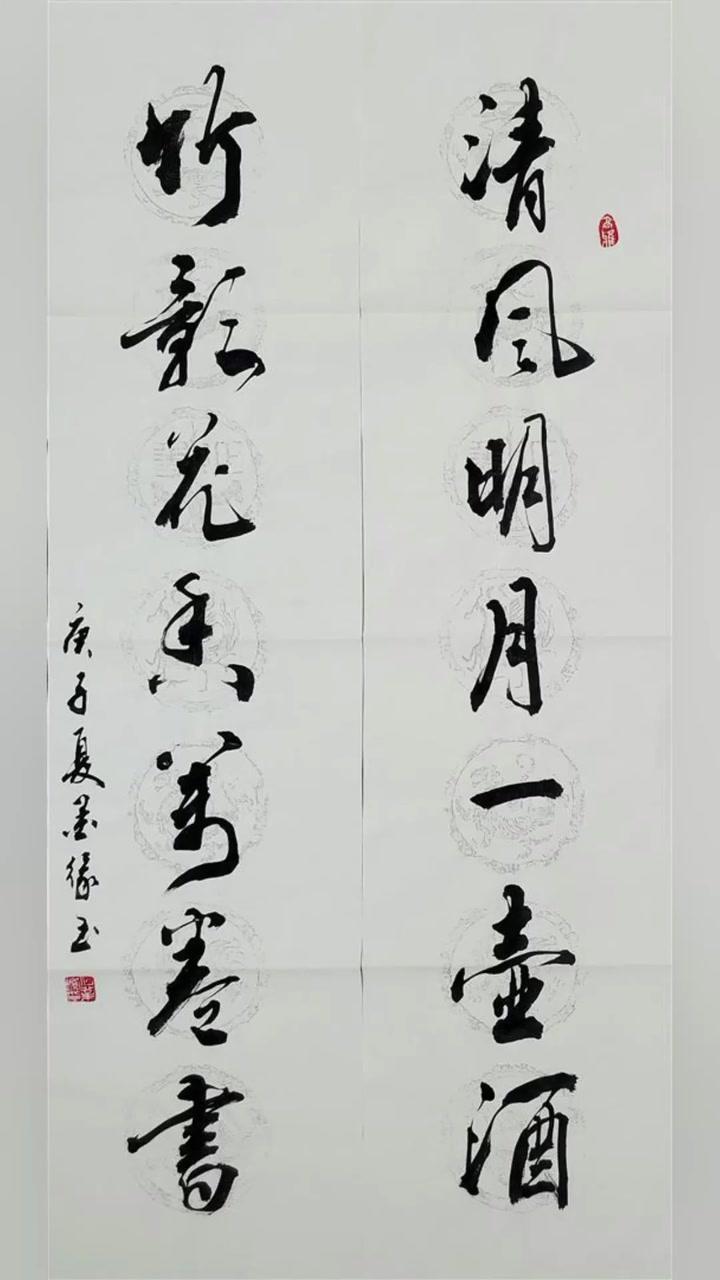 清风明月一壶酒
竹影花香万卷书
庚子夏墨缘玉